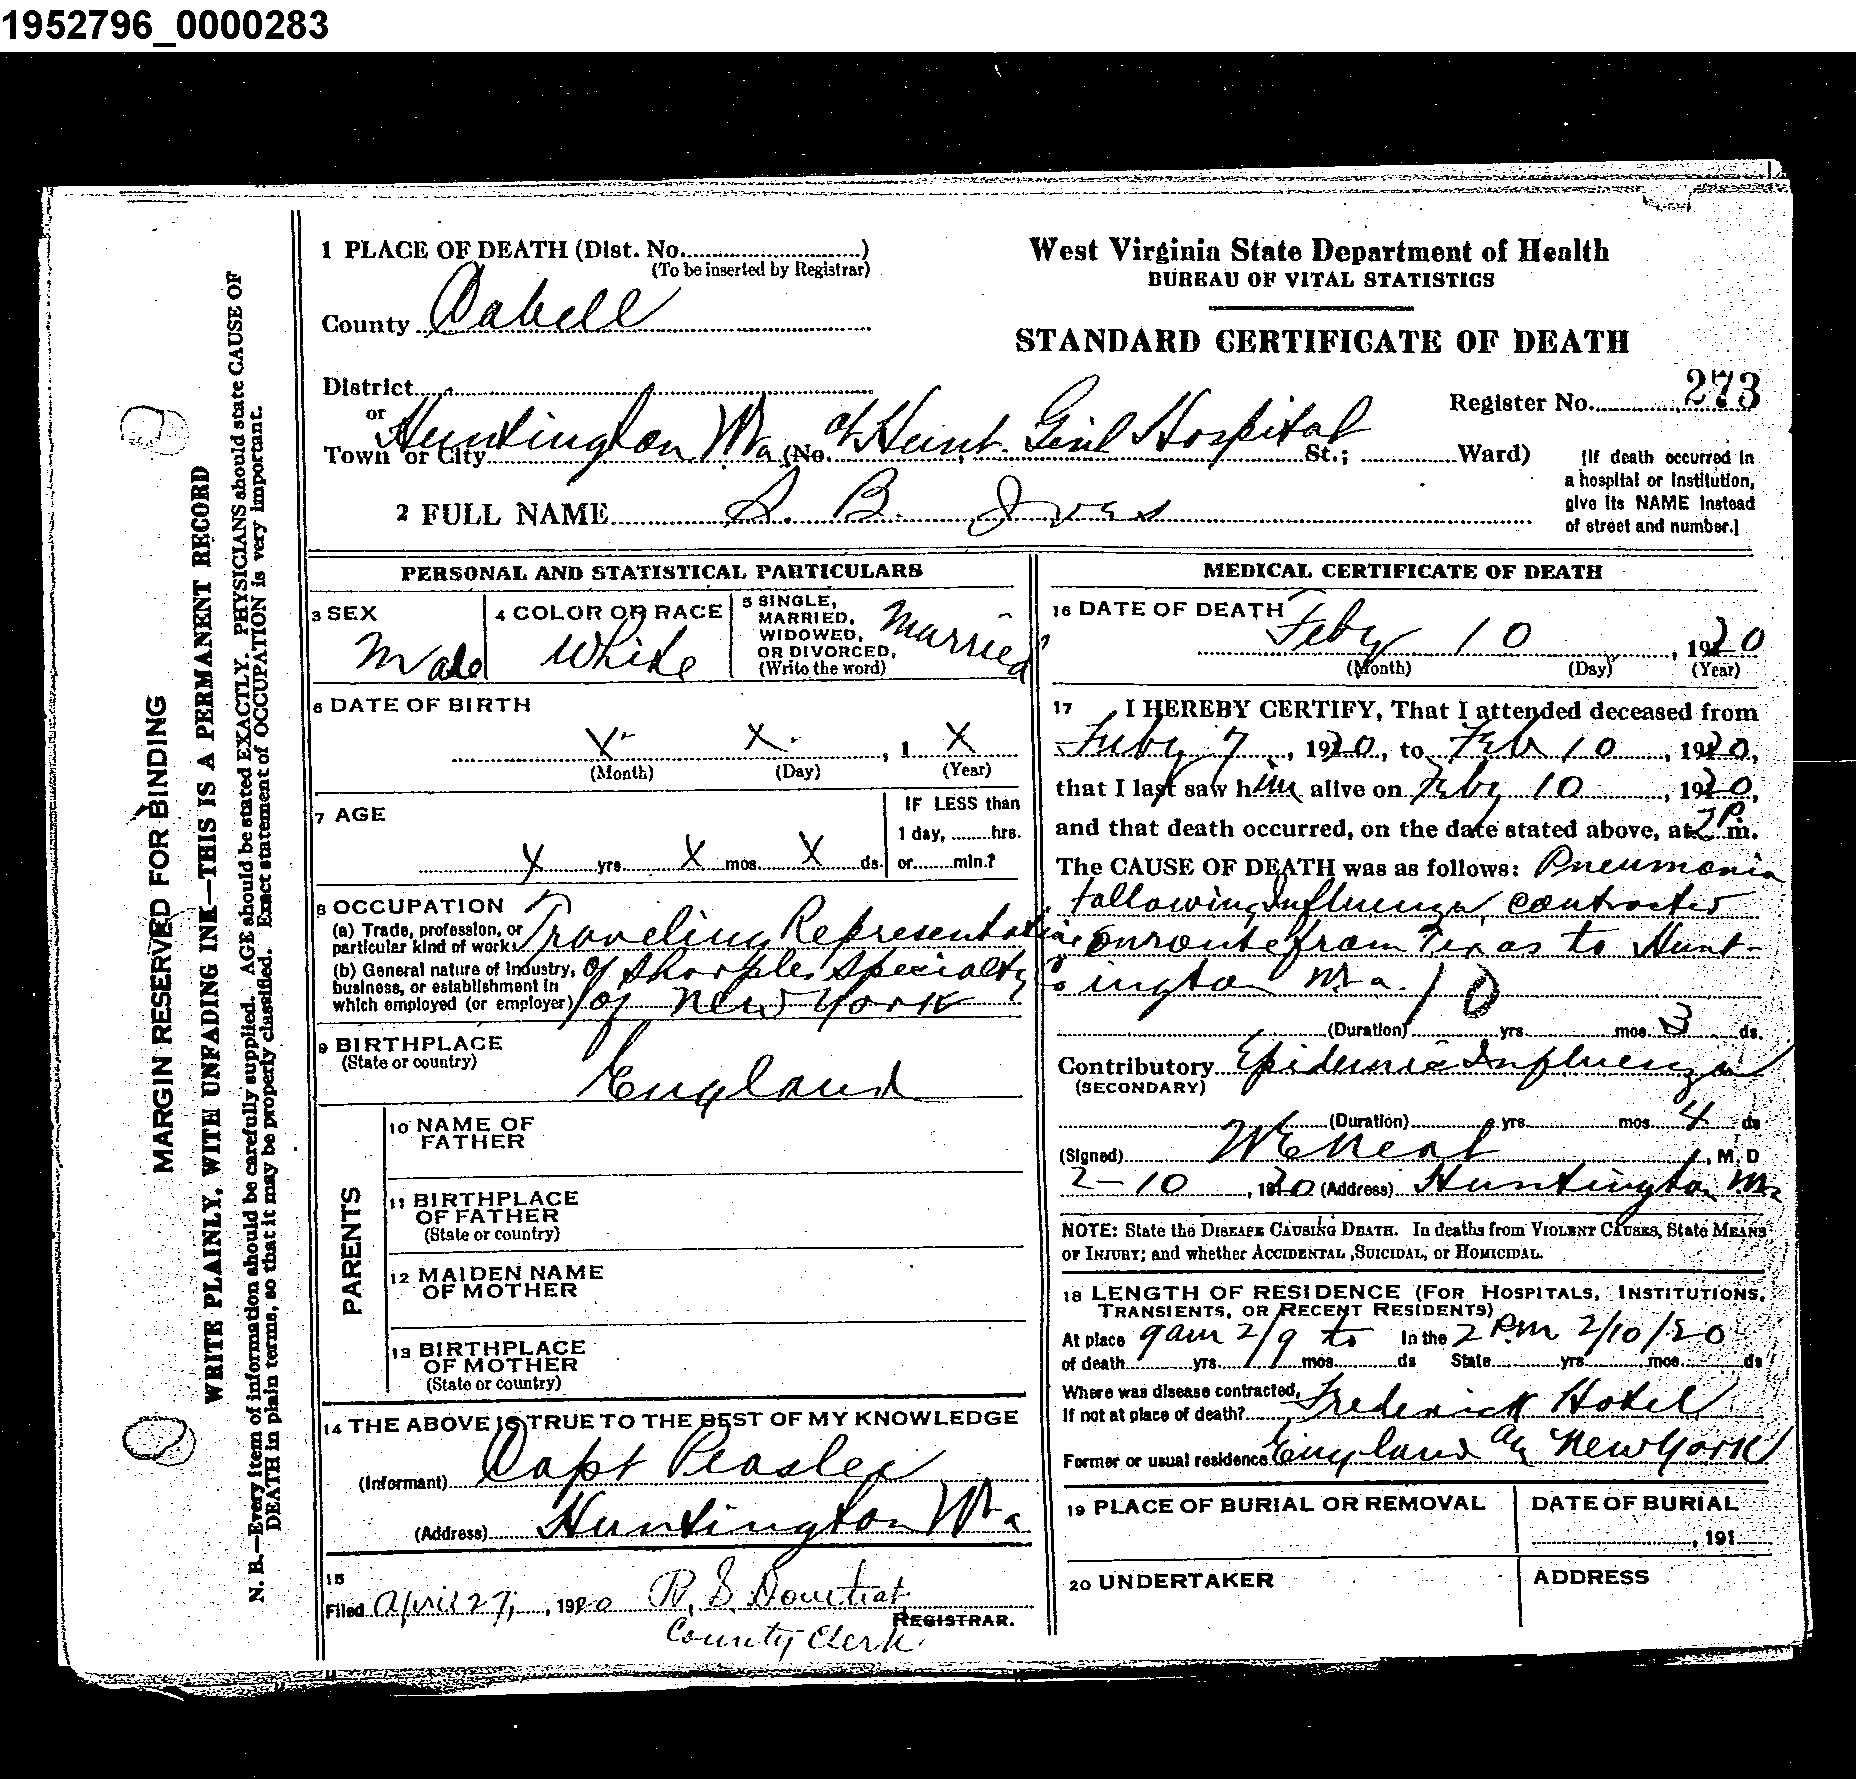 1952796_0000283
MARGIN RESERVED FOR BINDING
WRITE PLAINLY, WITH UNFADING INK—THIS IS A PERMANENT RECORD
N. B.—Every item of information should be carefully supplied. AGE should be stated EXACTLY. PHYSICIANS should state CAUSE OF
DEATH in plain terms, so that it may be properly classified. Exact statement of OCCUPATION is very important.
1 PLACE OF DEATH (Dist. No.)
(To be inserted by Registrar)
County Cabell
District
or
Town or City Huntington W Va (No. at Hunt. Genl Hospital St.; Ward)
West Virginia State Department of Health
BUREAU OF VITAL STATISTICS
STANDARD CERTIFICATE OF DEATH
Register No. 273
[If death occurred in
a hospital or institution,
give its NAME instead
of street and number.]
2 FULL NAME S. B. Ives
PERSONAL AND STATISTICAL PARTICULARS
3 SEX
Male
4 COLOR OR RACE
White
5 SINGLE,
MARRIED,
WIDOWED,
OR DIVORCED,
(Write the word)
Married
6 DATE OF BIRTH
X X , 1 X
(Month) (Day) (Year)
7 AGE
X yrs X mos X ds.
IF LESS than
1 day, hrs.
or min.?
8 OCCUPATION
(a) Trade, profession, or
particular kind of work
Traveling Representative
(b) General nature of industry,
business, or establishment in
which employed (or employer)
of Sharples Specialty Co
of New York
9 BIRTHPLACE
(State or country)
England
PARENTS
10 NAME OF
FATHER
11 BIRTHPLACE
OF FATHER
(State or country)
12 MAIDEN NAME
OF MOTHER
13 BIRTHPLACE
OF MOTHER
(State or country)
14 THE ABOVE IS TRUE TO THE BEST OF MY KNOWLEDGE
(Informant) Capt Peaslee
(Address) Huntington W Va
15
Filed April 27, 1920 R. S. Douthat
REGISTRAR.
County Clerk
MEDICAL CERTIFICATE OF DEATH
16 DATE OF DEATH
Feby 10, 1920
(Month) (Day) (Year)
17 I HEREBY CERTIFY, That I attended deceased from
Feby 7, 1920, to Feb 10, 1920,
that I last saw him alive on Feby 10, 1920,
and that death occurred, on the date stated above, at 2 P m.
The CAUSE OF DEATH was as follows: Pneumonia
following Influenza, contracted
enroute from Texas to Hunt-
ington W Va. 10
(Duration) yrs mos 3 ds.
Contributory Epidemic Influenza
(SECONDARY)
(Duration) yrs mos 4 ds
(Signed) W E Neal, M. D
2-10, 1920 (Address) Huntington W Va
NOTE: State the DISEASE CAUSING DEATH. In deaths from VIOLENT CAUSES, State MEANS
OF INJURY; and whether ACCIDENTAL ,SUICIDAL, or HOMICIDAL.
18 LENGTH OF RESIDENCE (FOR HOSPITALS, INSTITUTIONS,
TRANSIENTS, OR RECENT RESIDENTS)
At place 9 am 2/9 to In the 2 P.M 2/10/20
of death yrs mos ds State yrs mos ds
Where was disease contracted,
If not at place of death? Frederick Hotel
Former or usual residence England New York
19 PLACE OF BURIAL OR REMOVAL
DATE OF BURIAL
, 191
20 UNDERTAKER
ADDRESS